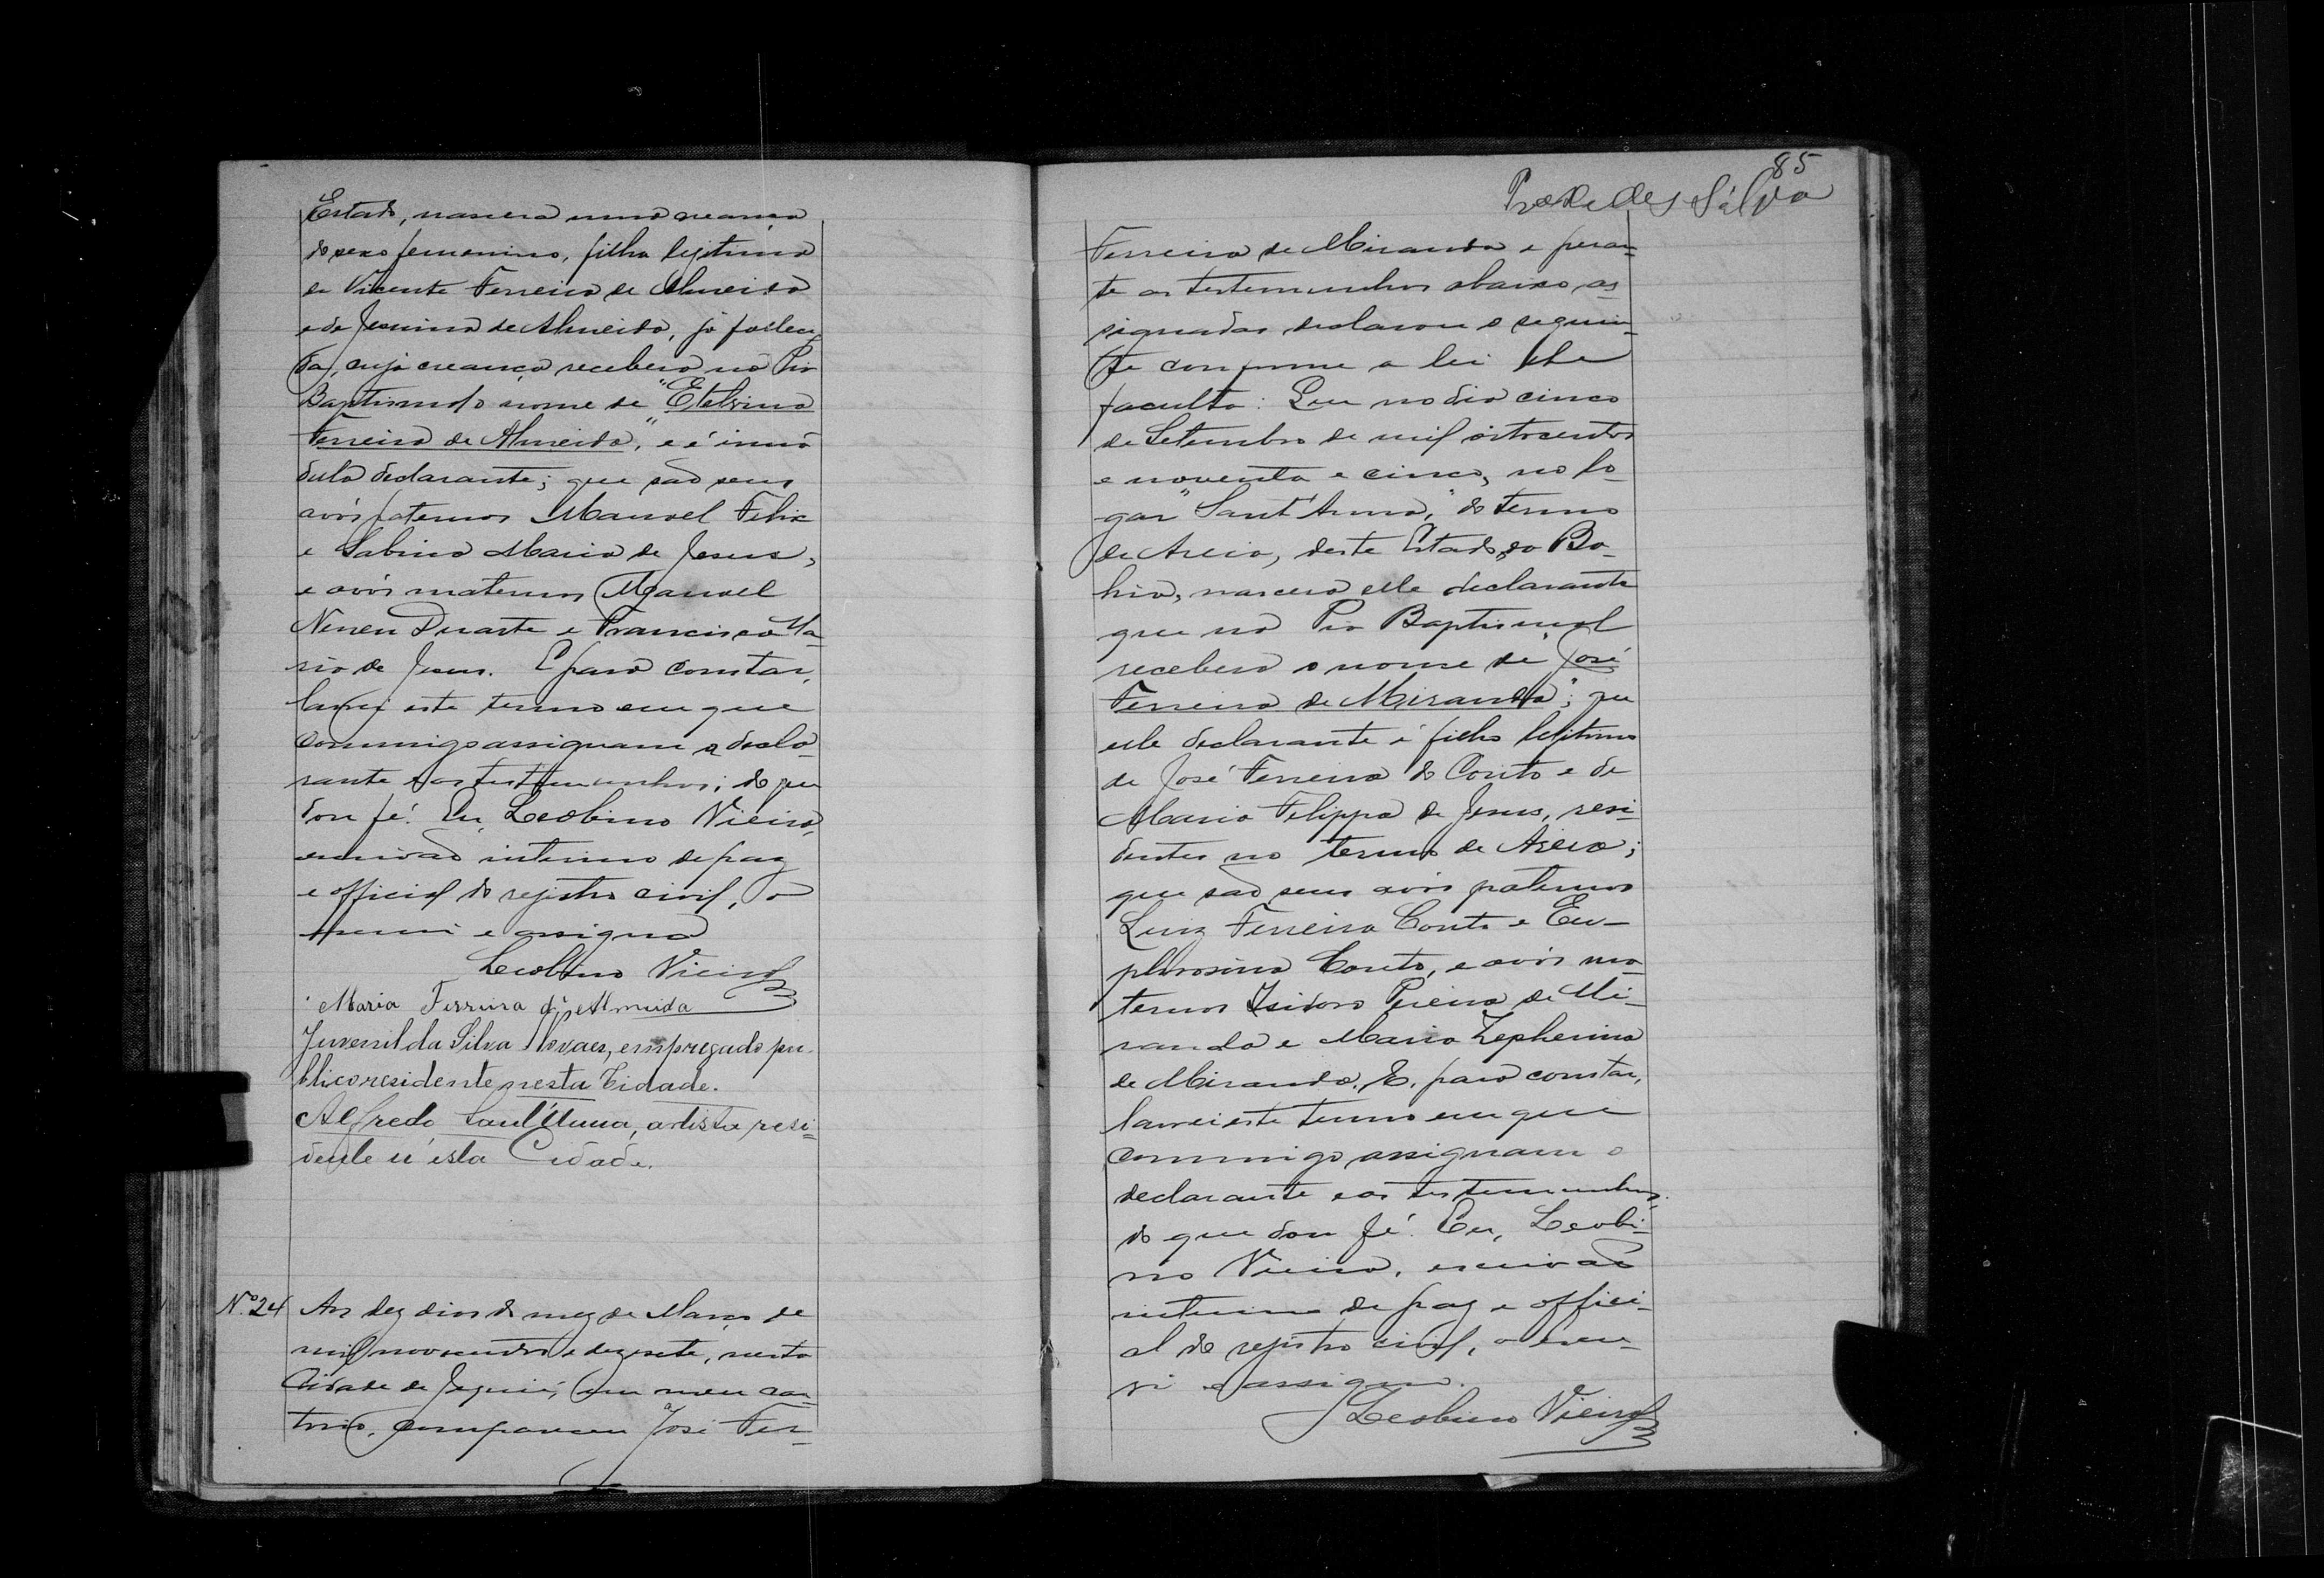 Estado, nascera uma creança
do sexo femenino, filha legitima
de Vicente Ferreira de Almeida
e de Jesuina de Almeida, já fallec
da, cuja creança recebera na Pia
Baptismal o nome de "Etelvina
Ferreira de Almeida", e é irmã
della declarante; que são seus
avós paternos Manoel Felix
e Sabina Maria de Jesus,
e avós maternos Manoel
Neneu Duarte e Francisca Ma
ria de Jesus. E para constar,
lavrei este termo em que
commigo assignam a decla-
rante e as testemunhas; do que
dou fé. Eu, Leobino Vieira,
escrivão interino de paz
e official do registro civil, o
escrevi e assigno
Leobino Vieira
Maria Ferreira de Almeida
Juvenil da Silva Novaes, empregado pu-
blico residente nesta Cidade.
Alfredo Sant'Anna, artista resi-
dente n'esta Cidade.
Nº 24 Aos dez dias do mez de Março de
mil novecentos e dezesete, nesta
Cidade de Jequié, em meu car-
torio, compareceu José Fer-
85
Prededes Silva
Ferreira de Miranda e peran-
te as testemunhas abaixo as
signadas, declarou o seguin-
te conforme a lei lhe
faculta: Que no dia cinco
de Setembro de mil oitocentos
e noventa e cinco, no lo-
gar "Sant'Anna", do termo
de Areia, deste Estado da Ba-
hia, nascera elle declarante
que na Pia Baptismal
recebera o nome de "José
Ferreira de Miranda"; que
elle declarante é filho legitimo
de José Ferreira do Couto e de
Maria Filippa de Jesus, resi-
dentes no termo de Areia;
que são seus avós paternos
Luiz Ferreira Couto e Eu-
phrosina Couto, e avós ma-
ternos Isidoro Pereira de Mi-
randa e Maria Zepherina
de Miranda. E, para constar,
lavrei este termo em que
commigo assignam o
declarante e as testemunhas;
do que dou fé. Eu, Leobi-
no Vieira, escrivão
interino de paz e offici-
al do registro civil, o escre-
vi e assigno.
Leobino Vieira